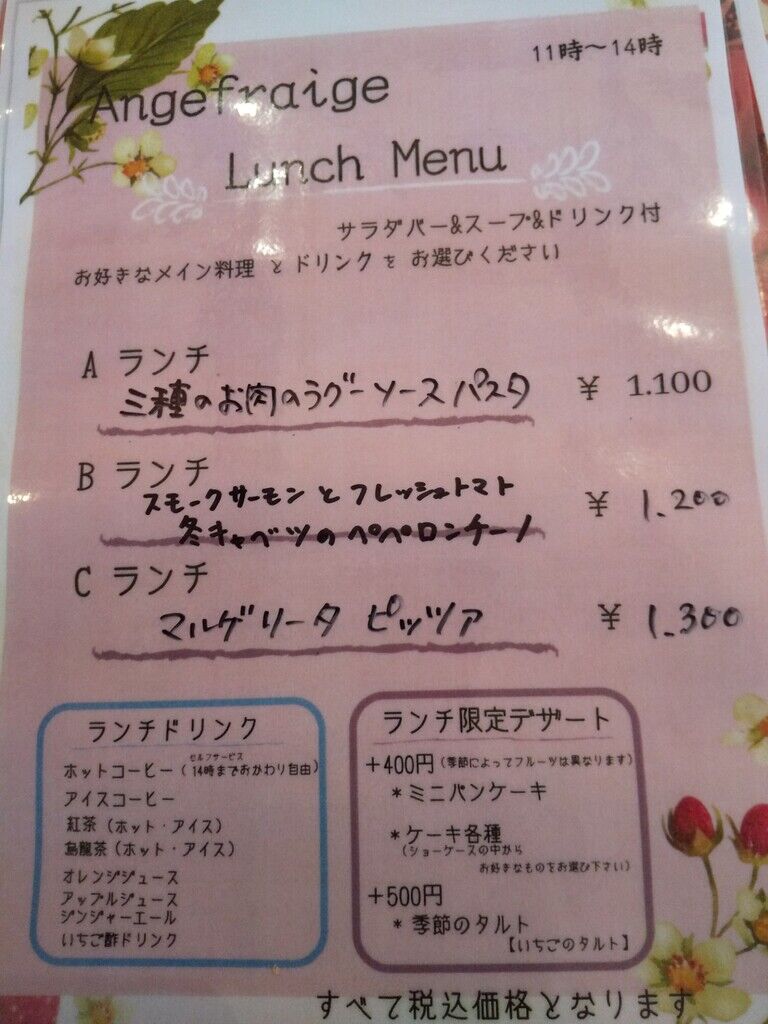 11時～14時
Angefraige
Lunch Menu
サラダバー&スープ&ドリンク付
お好きなメイン料理 と ドリンク を お選びください
A ランチ
三種のお肉のラグーソースパスタ ¥ 1.100
B ランチ
スモークサーモンとフレッシュトマト
冬キャベツのペペロンチーノ ¥ 1.200
C ランチ
マルゲリータ ピッツァ ¥ 1.300
ランチドリンク
セルフサービス
ホットコーヒー（14時までおかわり自由）
アイスコーヒー
紅茶（ホット・アイス）
烏龍茶（ホット・アイス）
オレンジジュース
アップルジュース
ジンジャーエール
いちご酢ドリンク
ランチ限定デザート
+400円（季節によってフルーツは異なります）
*ミニパンケーキ
*ケーキ各種
（ショーケースの中から
お好きなものをお選び下さい）
+500円
*季節のタルト
【いちごのタルト】
すべて税込価格となります